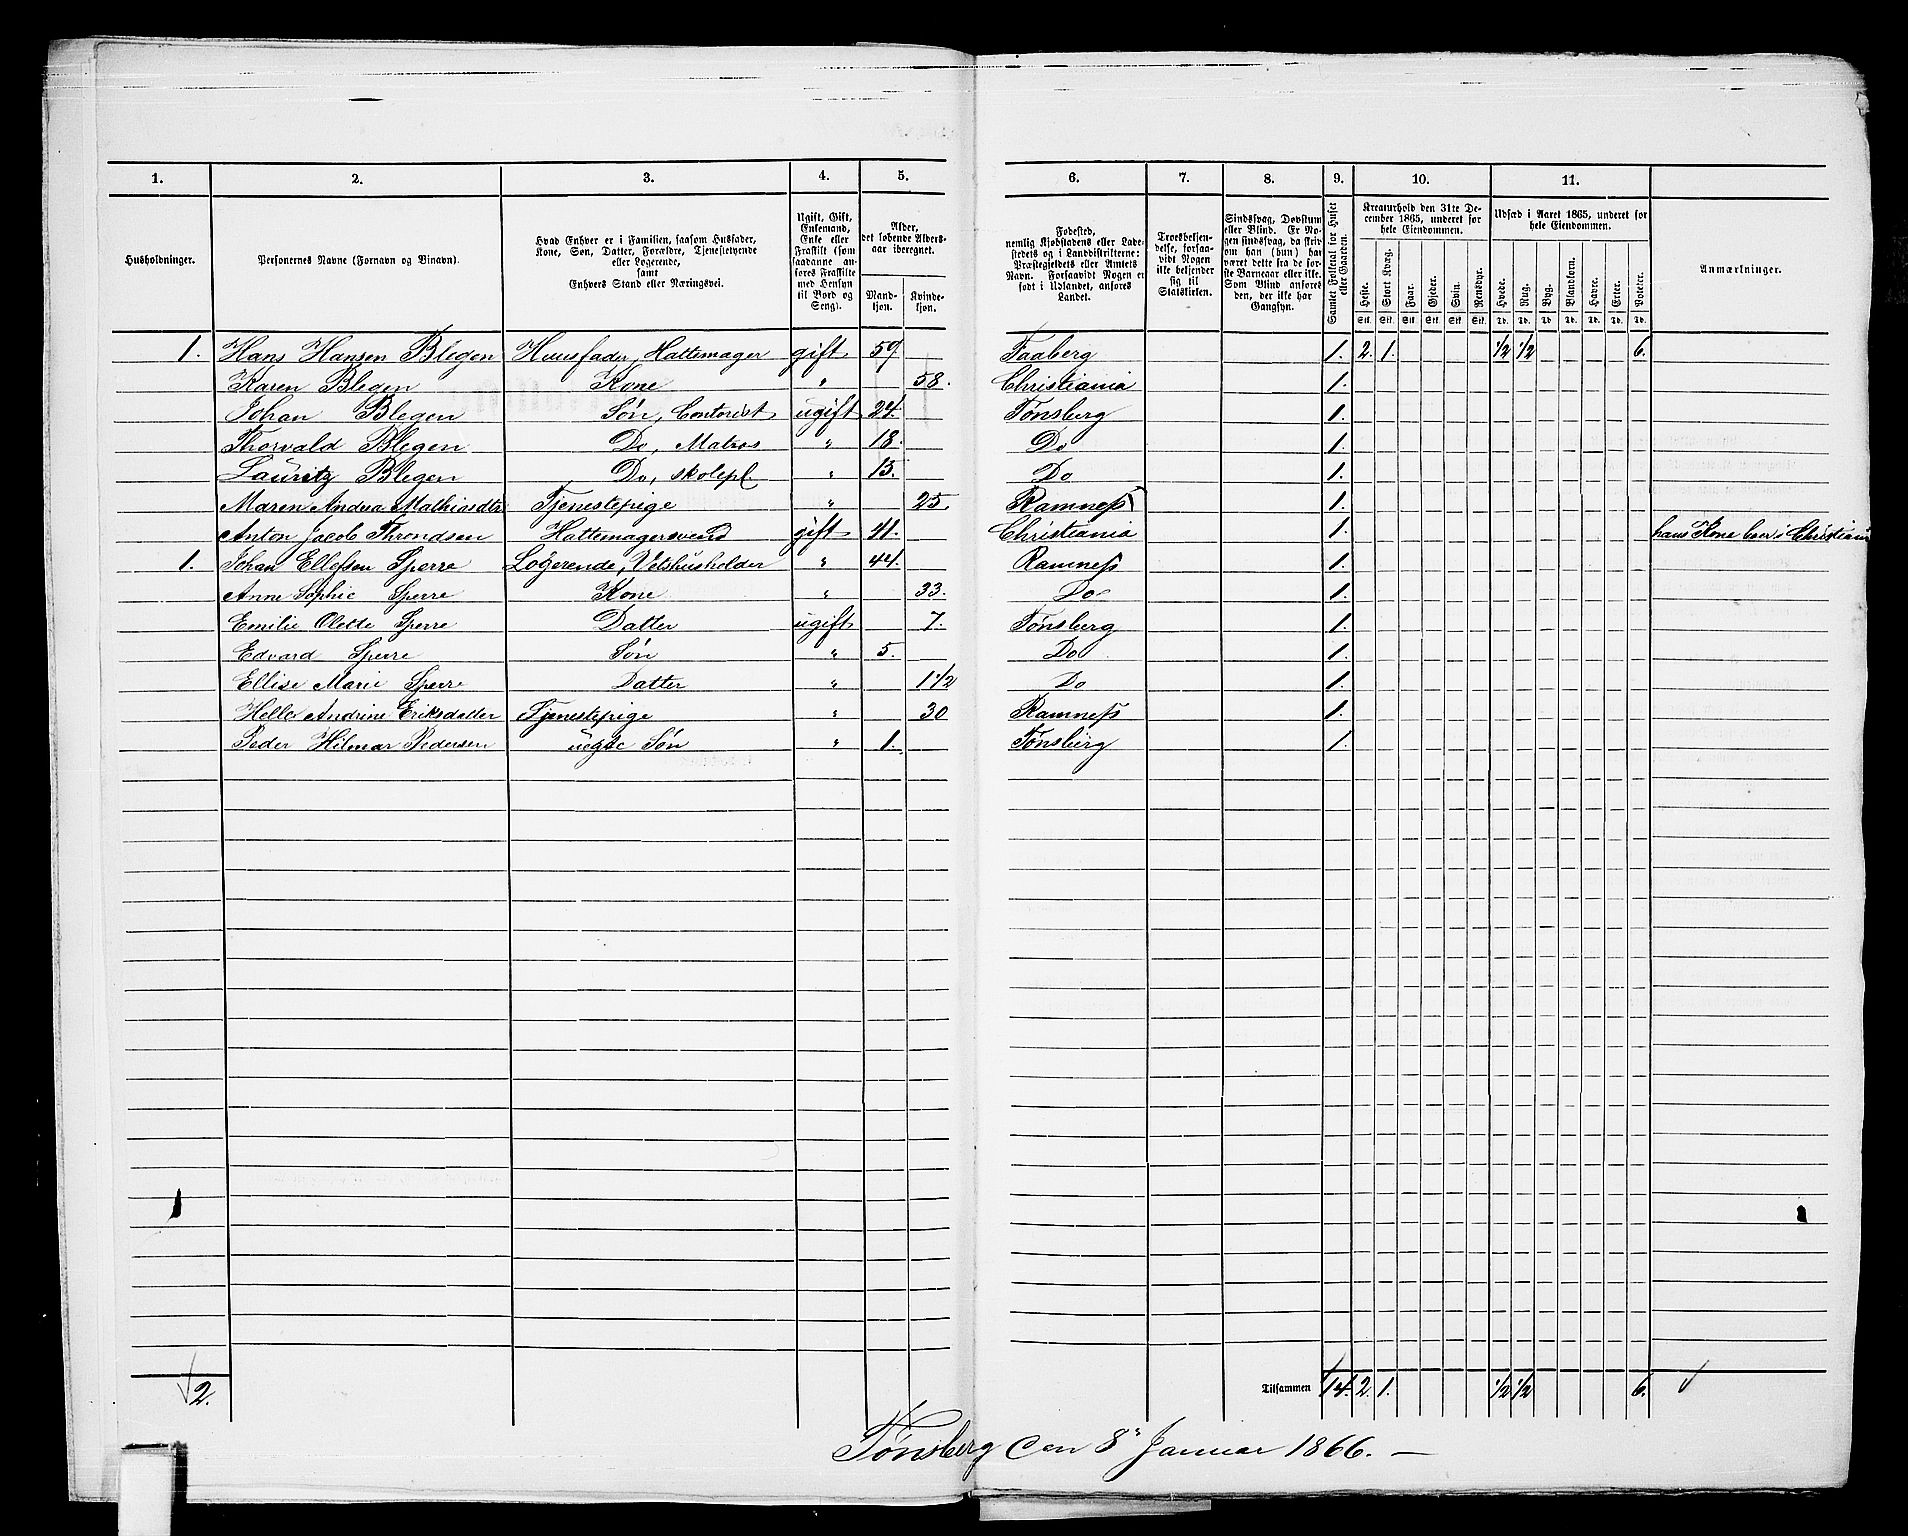 1. 2. 3. 4. 5. 6. 7. 8. 9. 10. 11.
Husholdninger.
Personernes Navne (Fornavn og Binavn).
Hvad Enhver er i Familien, saasom Husfader,
Kone, Søn, Datter, Forældre, Tjenestetyende
eller Logerende,
samt
Enhvers Stand eller Næringsvei.
Ugift, Gift,
Enkemand,
Enke eller
Fraskilt (som
saadanne an-
føres Fraskilte
med Hensyn
til Bord og
Seng).
Alder,
det løbende Alders-
aar iberegnet.
Mand-
kjøn.
Kvinde-
kjøn.
Fødested,
nemlig Kjøbstadens eller Lade-
stedets og i Landdistrikterne:
Præstegjeldets eller Amtets
Navn. Forsaavidt Nogen er
født i Udlandet, anføres
Landet.
Troesbekjen-
delse, forsaa-
vidt Nogen
ikke bekjender
sig til
Statskirken.
Sindssvag, Døvstum
eller Blind. Er No-
gen sindssvag, da skriv
om han (hun) har
været dette fra de før-
ste Barneaar eller ikke.
Som Blind anføres
den, der ikke har
Gangsyn.
Samlet Folketal for Huset
eller Gaarden.
Kreaturhold den 31te De-
cember 1865, underet for
hele Eiendommen.
Heste. Stort Kvæg. Faar. Gjeder. Svin. Rensdyr.
Stk. Stk. Stk. Stk. Stk. Stk.
Udsæd i Aaret 1865, underet for
hele Eiendommen.
Hvede. Rug. Byg. Blandkorn. Havre. Erter. Poteter.
Td. Td. Td. Td. Td. Td. Td.
Anmærkninger.
1. Hans Hansen Blegen Huusfader, Hattemager gift 59 Faaberg 1. 2. 1. 1/2 1/2 6.
Karen Blegen Kone " 58. Christiania 1.
Johan Blegen Søn, Contorist ugift 24. Tønsberg 1.
Thorvald Blegen Do, Matros " 18. Do 1.
Lauritz Blegen Do, skolepl. " 15. Do 1.
Maren Andrea Mathiasdtr Tjenestepige " 25 Ramness 1.
Anton Jacob Throndsen Hattemagersvend gift 41. Christiania 1. hans Kone boer i Christiania
1. Johan Ellefsen Sperre Logerende, Vertshusholder " 44. Ramness 1.
Anne Sophie Sperre Kone " 33. Do 1.
Emilie Olette Sperre Datter ugift 7. Tønsberg 1.
Edvard Sperre Søn " 5. Do 1.
Ellise Marie Sperre Datter " 1 1/2 Do 1.
Helle Andrine Eriksdatter Tjenestepige " 30 Ramness 1.
Peder Hilmar Pedersen uegte Søn " 1. Tønsberg 1.
2. Tilsammen 14. 2. 1. 1/2 1/2 6.
Tønsberg den 8de Januar 1866. —